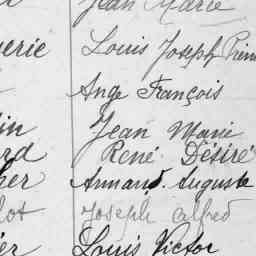 Jean Marie
erie Louis Joseph Pierre
Ange François
in Jean Marie
rd René Désiré
her Armand. Auguste
lot Joseph Alfred
ier Louis Victor